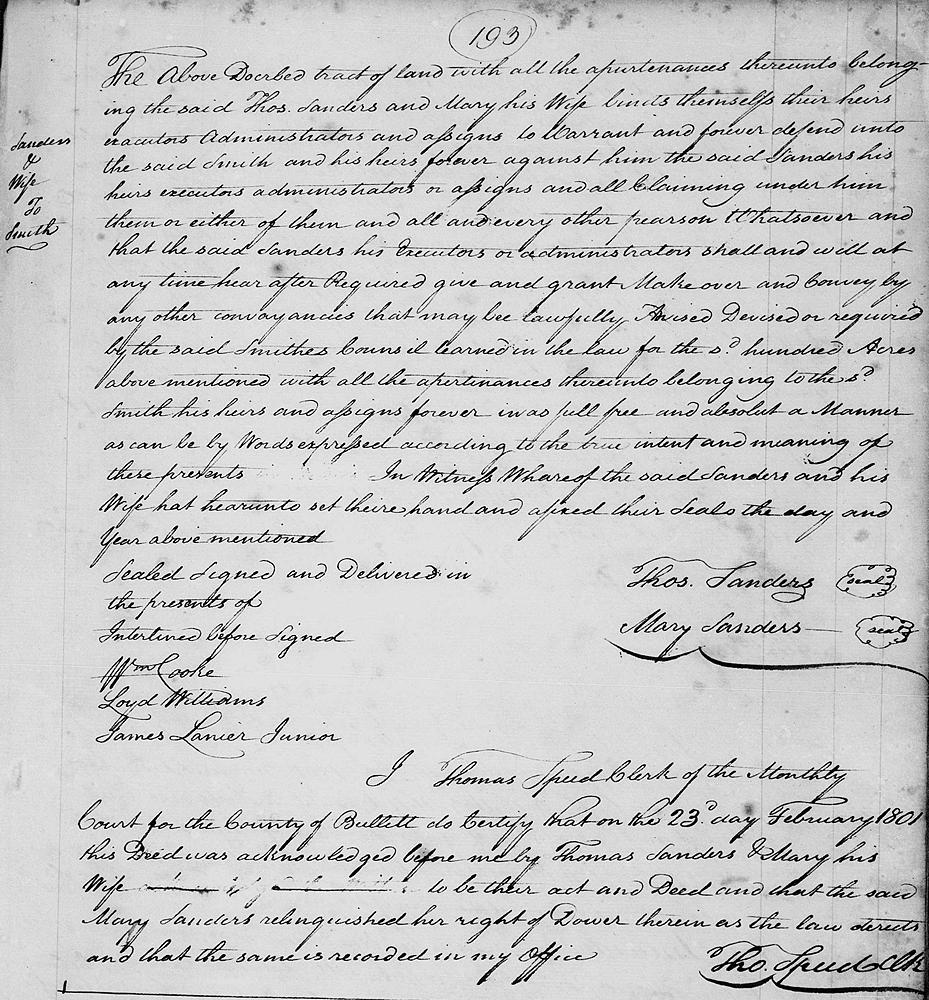 193
The Above Docrbed tract of land with all the apurtenances thereunto belong-
ing the said Thos. Sanders and Mary his Wife binds themselfs their heirs
executors Administrators and assigns to Warrant and forever defend unto
the said Smith and his heirs forever against him the said Sanders his
heirs executors administrators or assigns and all Claiming under him
them or either of them and all and every other pearson Whatsoever and
that the said Sanders his Executors or administrators shall and will at
any time hear after Required give and grant Make over and Convey by
any other convayancies that may bee lawfully Devised or required
by the said Smithes Counsil learned in the law for the sd hundred Acres
above mentioned with all the apertinances thereunto belonging to the sd
Smith his heirs and assigns forever in as full free and absolut a Manner
as can be by Words expressed according to the true intent and meaning of
these presents In Witness Whareof the said Sanders and his
Wife hat hearunto set theire hand and afixed their Seals the day and
Year above mentioned
Sanders
&
Wife
To
Smith
Sealed Signed and Delivered in
the presents of
Interlined before Signed
Wm Cooke
Loyd Williams
James Lanier Junior
Thos. Sanders seal
Mary Sanders seal
I Thomas Speed Clerk of the Monthly
Court for the County of Bullett do Certify that on the 23d day February 1801
this Deed was acknowledged before me by Thomas Sanders & Mary his
Wife to be their act and Deed and that the said
Mary Sanders relinquished her right of Dower therein as the law derects
and that the same is recorded in my Office
Tho. Speed Clk